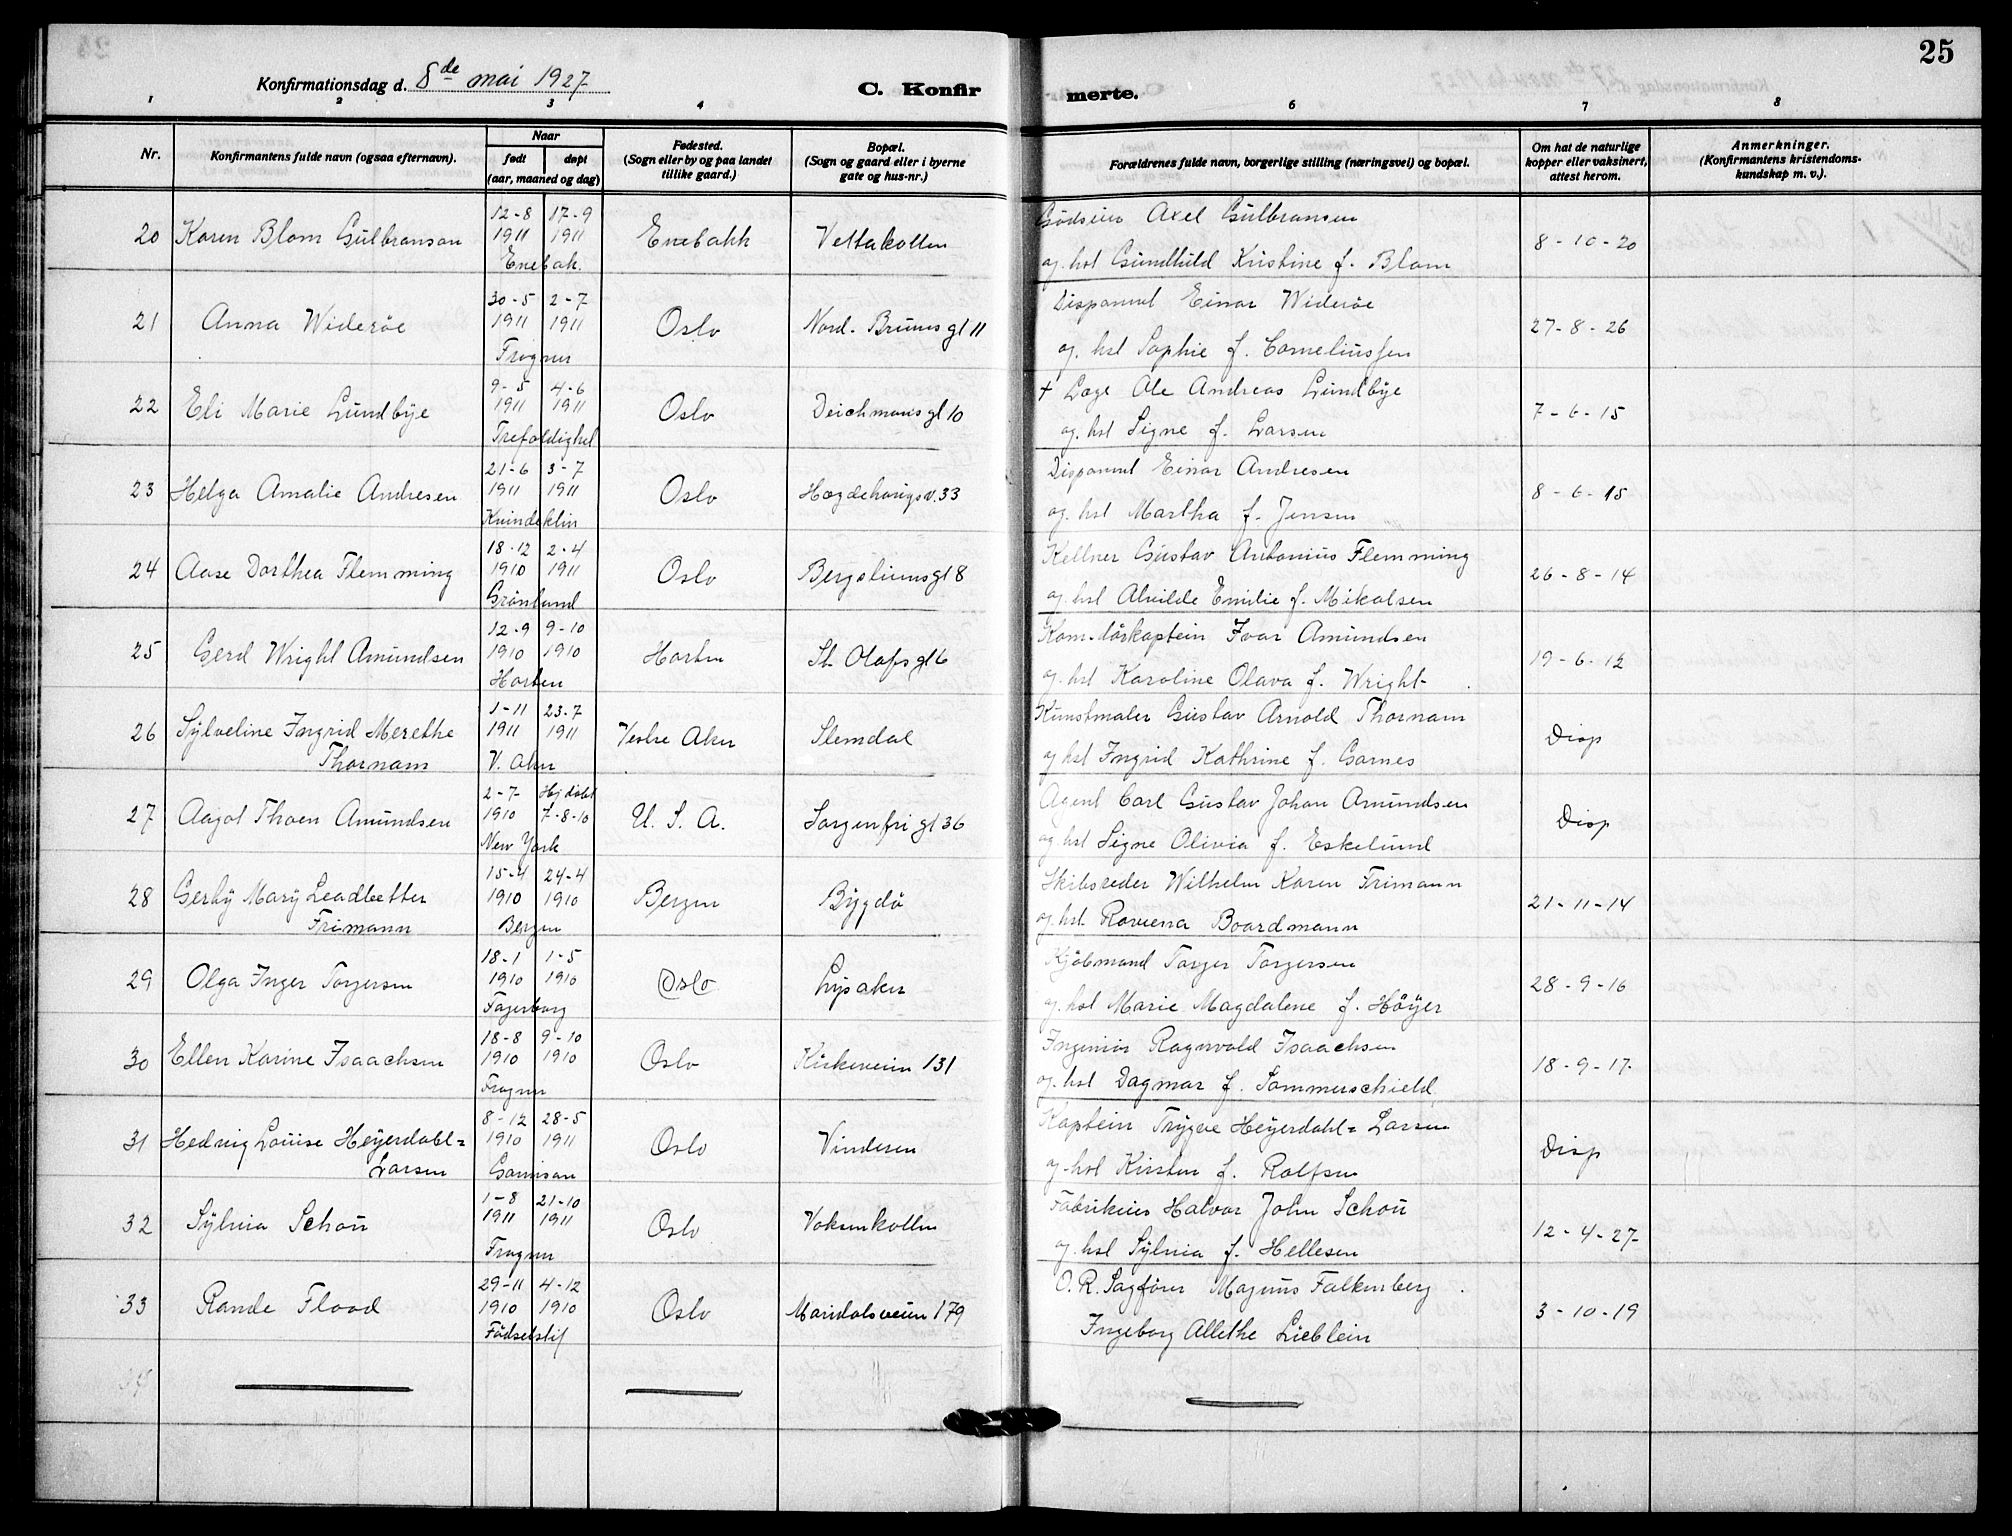 25
Konfirmationsdag d. 8de mai 1927
C. Konfirmerte.
1 2 3 4 6 7 8
Nr.
Konfirmantens fulde navn (ogsaa efternavn).
Naar
født døpt
(aar, maaned og dag)
Fødested.
(Sogn eller by og paa landet
tillike gaard.)
Bopæl.
(Sogn og gaard eller i byerne
gate og hus-nr.)
Forældrenes fulde navn, borgerlige stilling (næringsvei) og bopæl.
Om hat de naturlige
kopper eller vaksinert,
attest herom.
Anmerkninger.
(Konfirmantens kristendoms-
kundskap m. v.).
12-8 17-9 Axel Gulbransen
20 Karen Blom Gulbranson 1911 1911 Enebakk Vettakollen 8-10-20
Enebak. og hst Gundhild Kristine f. Blom
30-5 2-7 Disponent Einar Widerøe
21 Anna Widerøe 1911 1911 Oslo Nord. Bruns gt 11 27-8-26
Frogner og. hst Sophie f. Corneliussen
9-5 4-6 + Læge Ole Andreas Lundbye
22 Eli Marie Lundbye 1911 1911 Oslo Deichmans gt 10 7-6-15
Trefoldighet og. hst Signe f. Larsen
21-6 3-7 Disponent Einar Andresen
23 Helga Amalie Andresen 1911 1911 Oslo Hægdehaugsv. 33 8-6-15
og. hst Martha f. Jensen
18-12 2-4 Kellner Gustav Antonius Flemming
24 Aase Dorthea Flemming 1910 1911 Oslo Bergsliens gt 8 26-8-14
Grønland og hst Alvilde Emilie f. Mikalsen
12-9 9-10 Kom-dörkaptein Ivar Amundsen
25 Gerd Wright Amundsen 1910 1910 Horten St. Olafs gt 6 19-6-12
Horten og hst Karoline Olava f. Wright
1-11 23-7 Kunstmaler Gustav Arnold Thornam
26 Sylveline Ingrid Merethe 1911 1911 Vestre Aker Slemdal Disp
Thornam V. Aker og hst Ingrid Kathrine f. Garnes
2-7 Hj døbt Agent Carl Gustav Johan Amundsen
27 Aagot Thoen Amundsen 1910 7-8-10 U. S. A. Sorgenfri gt 36 Disp
New York og hst Signe Olivia f. Eskelund
15-4 24-4 Skibsreder Wilhelm Karen Frimann
28 Gerby Mary Leadbetter 1910 1910 Bergen Bygdö 21-11-14
Frimann Bergen og hst Roviena Boardmann
18-1 1-5 Kjöbmand Torger Torgersen
29 Olga Inger Torgersen 1910 1910 Oslo Lysaker 28-9-16
Fagerborg og hst Marie Magdalene f. Höyer
18-8 9-10 Ingeniör Ragnvald Isaachsen
30 Ellen Karine Isaachsen 1910 1910 Oslo Kirkeveien 131 18-9-17
Frogner og hst Dagmar f. Sommerschield
8-12 28-5 Kaptein Trygve Heyerdahl= Larsen
31 Hedvig Louise Heyerdahl= 1910 1911 Oslo Vinderen Disp
Larsen Garnison og hst Kirsten f. Rolfsen
1-8 21-10 Fabrikeier Halvor John Schou
32 Sylvia Schou 1911 1911 Oslo Voksenkollen 12-4-27
Frogner og. hst Sylvia f. Hellesen
29-11 4-12 O. R. Sagförer Magnus Falkenberg
33 Rande Flood 1910 1910 Oslo Maridalsveien 179 3-10-19
Födselstif Ingeborg Allethe Lieblein
34